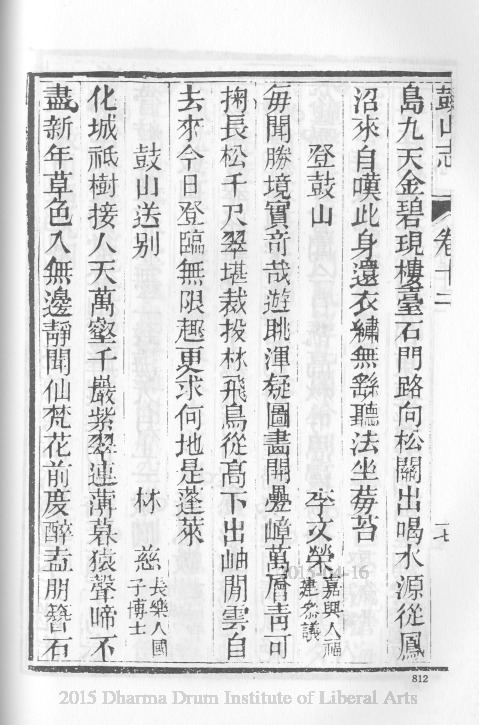 鼓山志 卷十二 十七
島九天金碧現樓臺石門路向松關出喝水源從鳳
沼來自嘆此身還衣繡無緣聽法坐莓苔
登鼓山 李文榮嘉興人福建參議
每聞勝境實奇哉遊眺渾疑圖畫開疊嶂萬層青可
掬長松千尺翠堪裁投林飛鳥從高下出岫閒雲自
去來今日登臨無限趣更求何地是蓬萊
鼓山送别 林慈長樂人國子博士
化城祗樹接人天萬壑千巖紫翠連薄暮猿聲啼不
盡新年草色入無邊靜聞仙梵花前度醉盍朋簪石
812
2015-04-16
2015 Dharma Drum Institute of Liberal Arts